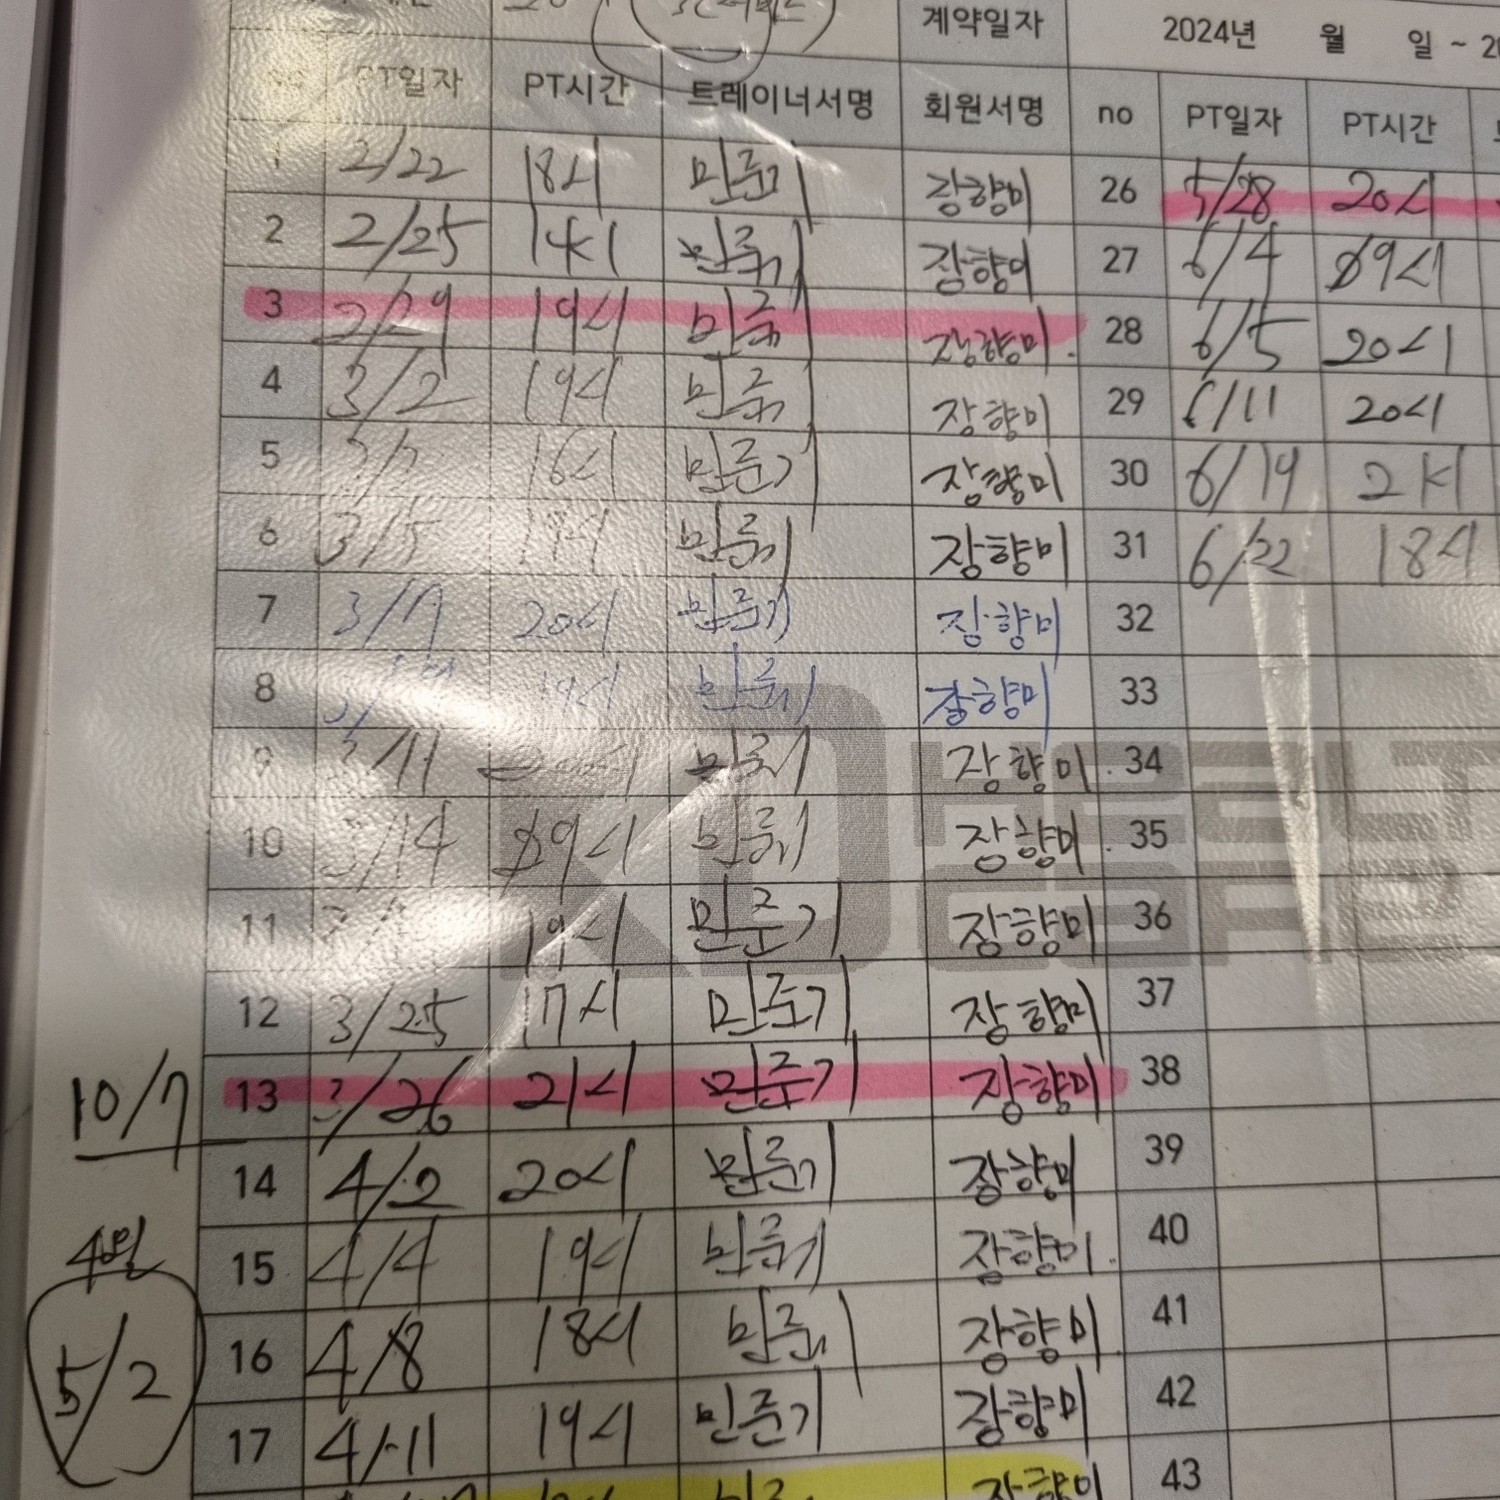 계약일자 2024년 월 일 ~
PT일자 PT시간 트레이너서명 회원서명 no PT일자 PT시간
1 2/22 18시 민준기 장향미 26 5/28 20시
2 2/25 14시 민준기 장향미 27 6/4 19시
3 2/29 19시 민준기 장향미. 28 6/5 20시
4 3/2 19시 민준기 장향미 29 6/11 20시
5 16시 민준기 장향미 30 6/19 21시
6 3/5 19시 민준기 장향미 31 6/22 18시
7 3/7 20시 민준기 장향미 32
8 19시 민준기 장향미 33
9 3/11 민준기 장향미. 34
10 3/14 19시 민준기 장향미. 35
11 19시 민준기 장향미 36
12 3/25 17시 민준기 장향미 37
13 3/26 21시 민준기 장향미 38
10/7
14 4/2 20시 민준기 장향미 39
15 4/4 19시 민준기 장향미. 40
4월
16 4/8 18시 민준기 장향미. 41
5/2
17 4/11 19시 민준기 장향미 42
장향미 43